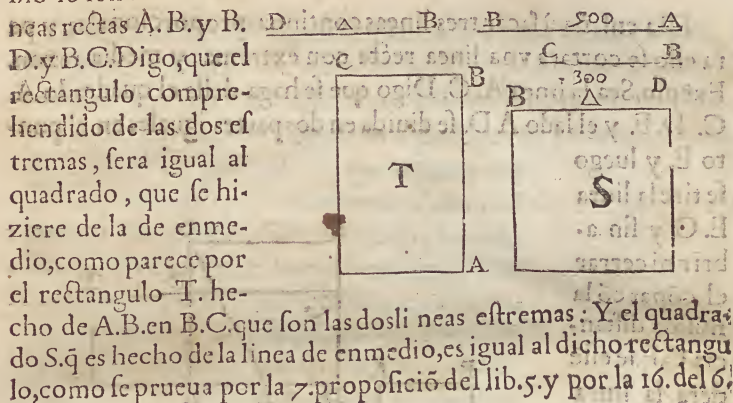 neas rectas A. B. y B.
D. y B. C. Digo, que el
rectangulo compre-
hendido de las dos eſ
tremas, ſera igual al
quadrado, que ſe hi-
ziere de la de enme-
dio, como parece por
el rectangulo T. he-
cho de A.B. en B.C. que ſon las dosli neas eſtremas: Y el quadra-
do S. q̄ es hecho de la linea de enmedio, es igual al dicho rectangu
lo, como ſe prueua por la 7. propoſiciō del lib. 5. y por la 16. del 6.
D △ B B 500 A
C B
300
C B
T
A
B △ D
S